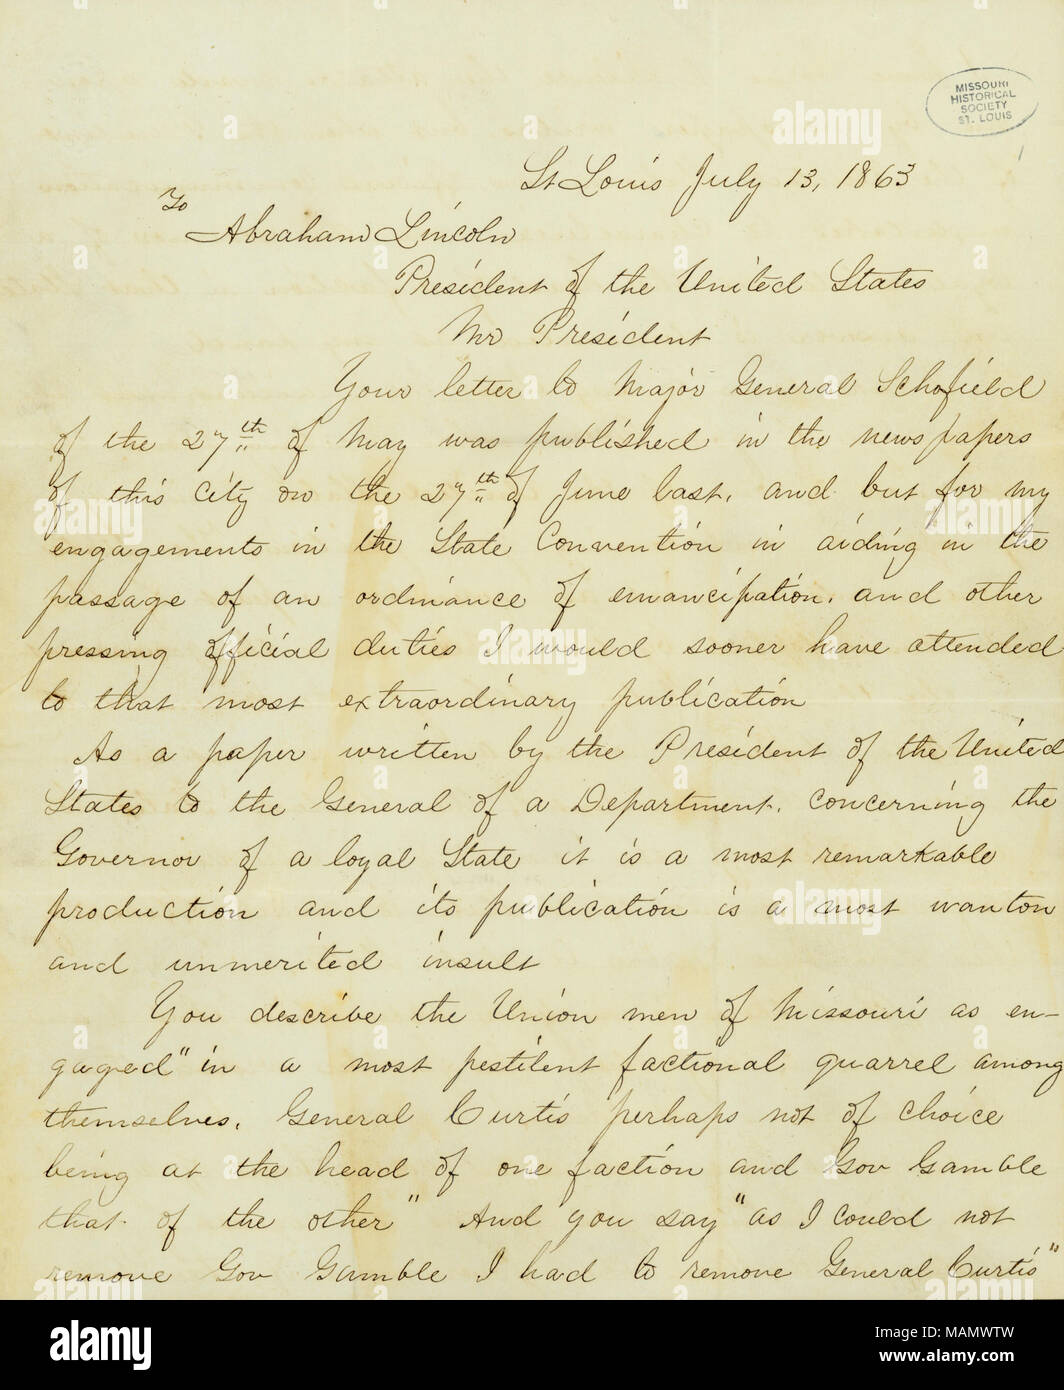 MISSOURI
HISTORICAL
SOCIETY
ST. LOUIS
St Louis July 13, 1863
To
Abraham Lincoln
President of the United States
Mr President
Your letter to Major General Schofield
of the 27th of May was published in the newspapers
of this city on the 27th of June last, and but for my
engagements in the State Convention in aiding in the
passage of an ordinance of emancipation, and other
pressing official duties I would sooner have attended
to that most extraordinary publication
As a paper written by the President of the United
States to the General of a Department, concerning the
Governor of a loyal State it is a most remarkable
production and its publication is a most wanton
and unmerited insult
You describe the Union men of Missouri as en-
gaged "in a most pestilent factional quarrel among
themselves, General Curtis perhaps not of choice
being at the head of one faction and Gov Gamble
that of the other" And you say "as I could not
remove Gov Gamble I had to remove General Curtis"
alamy
Image ID: MAMWTW
www.alamy.com